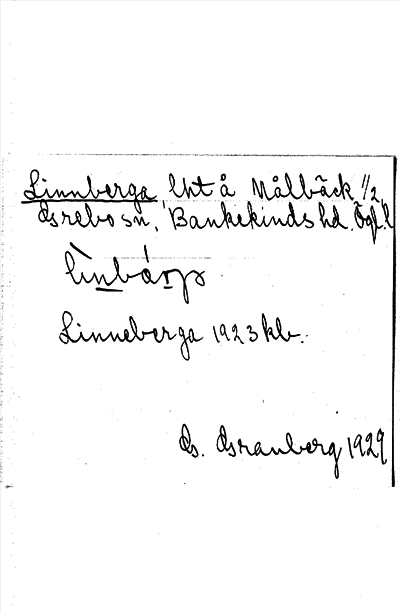 Linnberga, lht å Målbäck 1/2,
Grebo sn, Bankekinds hd, Ögl. l
Linneberga 1923 kb.
G. Granberg 1929